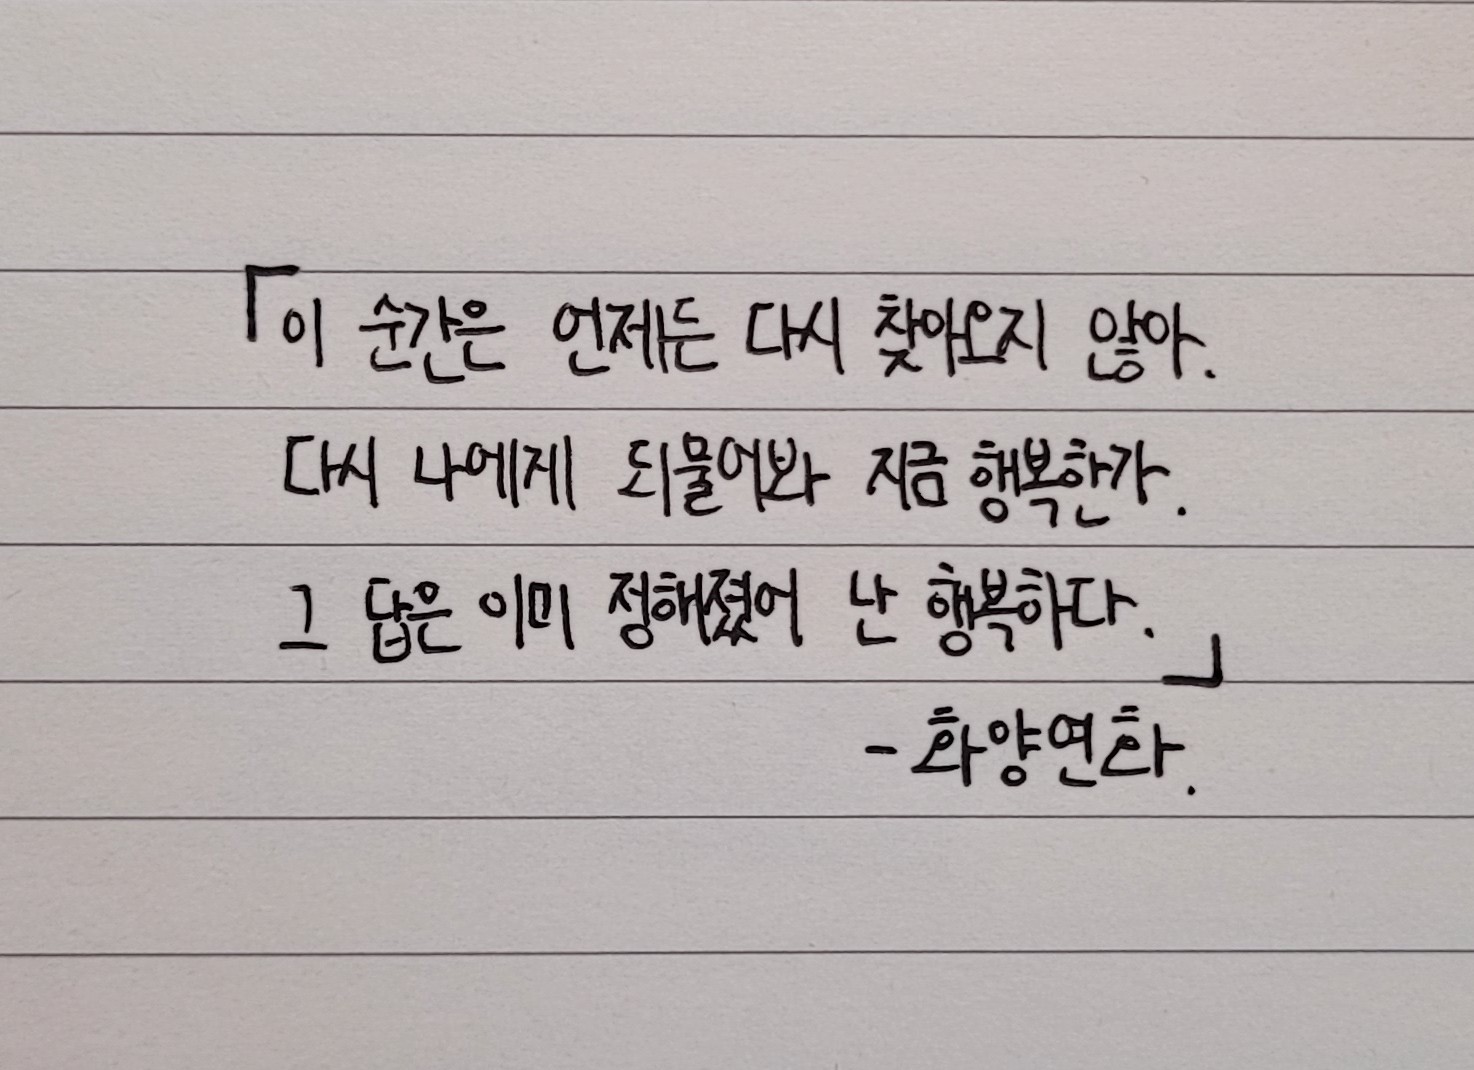 「이 순간은 언제든 다시 찾아오지 않아.
다시 나에게 되물어봐 지금 행복한가.
그 답은 이미 정해졌어 난 행복하다.」
- 화양연화.